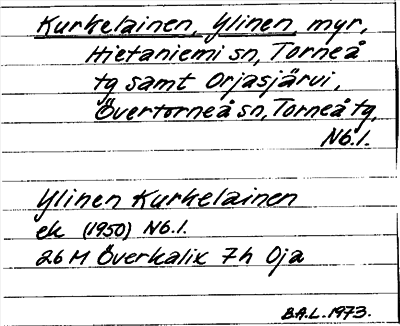 Kurkelainen, Ylinen, myr,
Hietaniemi sn, Torneå
tg samt Orjasjärvi,
Övertorneå sn, Torneå tg,
Nb.l.
Ylinen Kurkelainen
ek (1950) Nb.l.
26 M Överkalix 7h Oja
B.A.L. 1973.